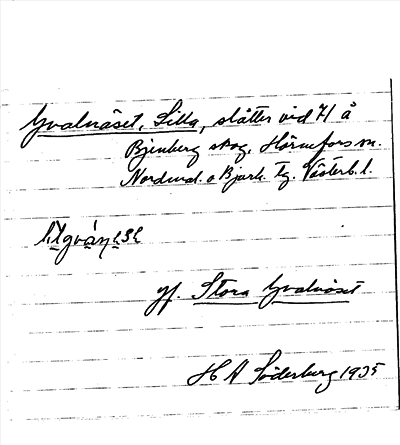 Gvalnäset, Lilla, slåtter vid 7/1 å
Bjenberg skog, Hörnefors sn.
Nordmal. o Bjurh. tg. Västerb. l.
jf. Stora Gvalnäset
H A Söderberg 1935